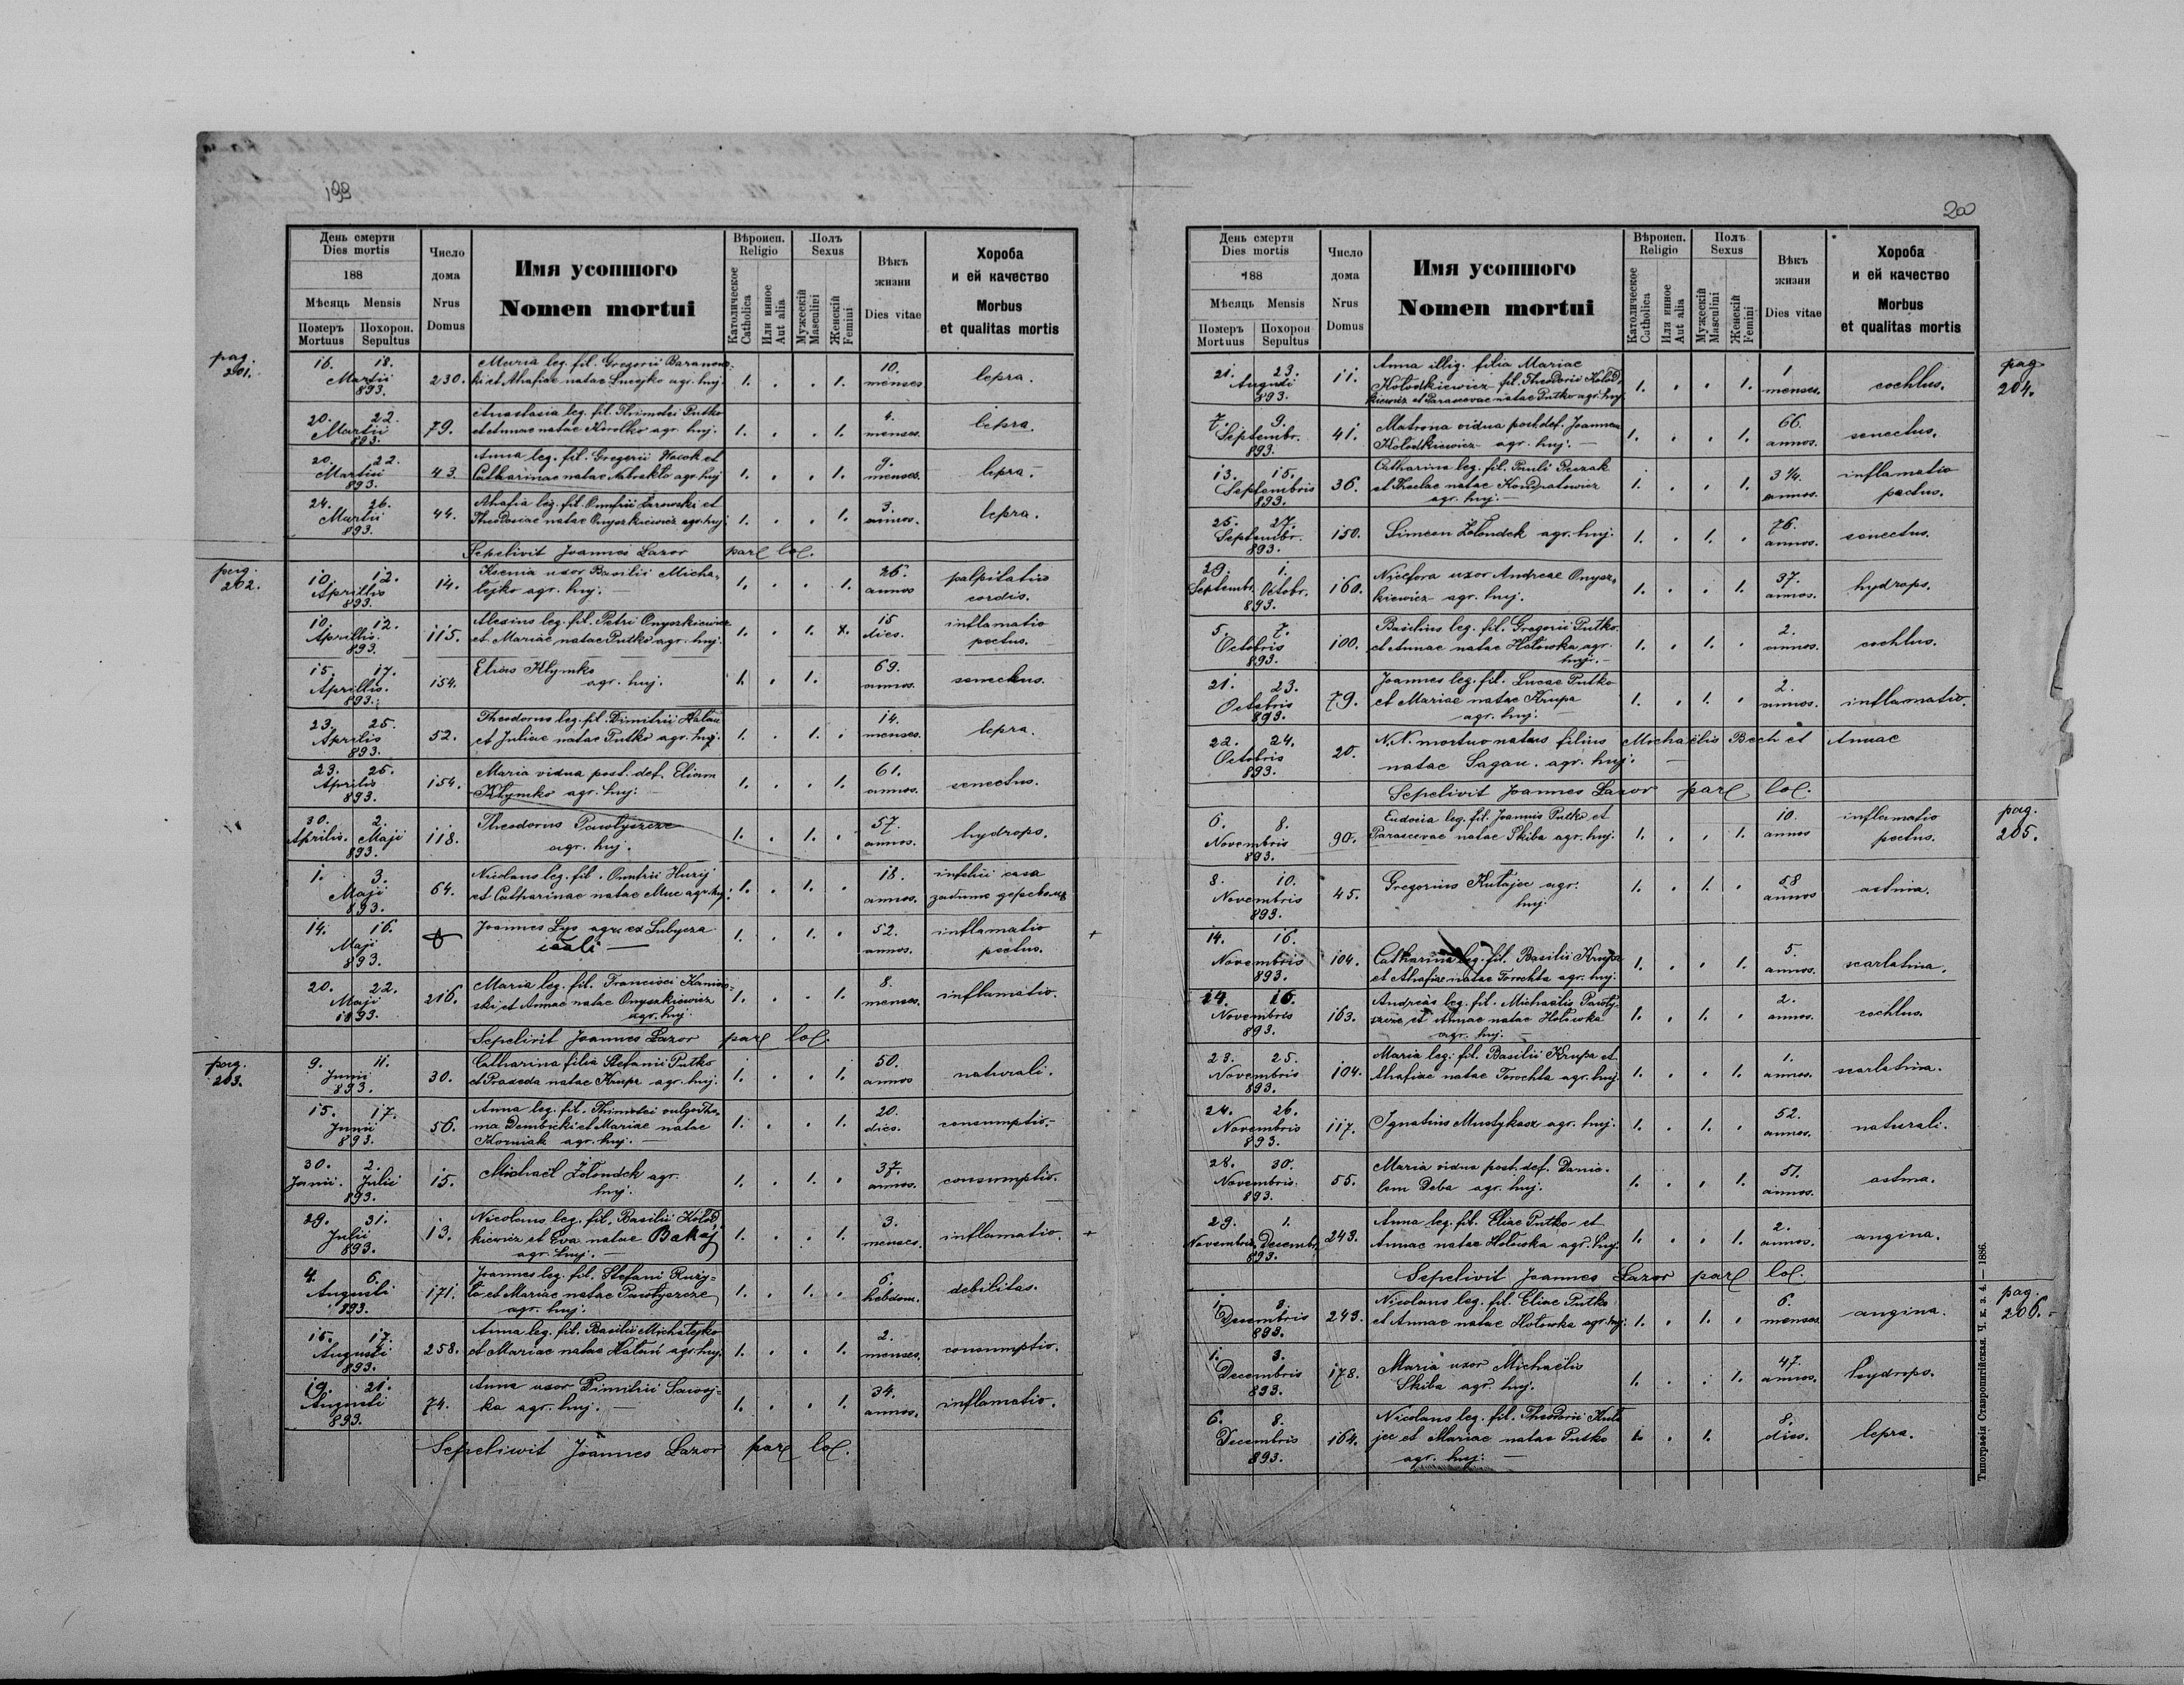 199
День смерти
Dies mortis
188
Мѣсяць Mensis
Померъ Mortuus
Похорон. Sepultus
Число дома
Nrus Domus
Имя усопшого
Nomen mortui
Вѣроисп.
Religio
Католическое Catholica
Или инное Aut alia
Полъ
Sexus
Мужескій Masculini
Женскій Femini
Вѣкъ жизни
Dies vitae
Хороба
и ей качество
Morbus
et qualitas mortis
pag. 201.
16. 18. Martii 893. 230. Maria leg. fil. Gregorii Baranows-
ki et Ahafiae natae agr. huj. 1. . . 1. 10. menses lepra.
20. 22. Martii 893. 79. Anastasia leg. fil. Thimotei Putko
et Annae natae agr. huj. 1. . . 1. 4. menses. lepra.
20. 22. Martii 893. 43. Anna leg. fil. Gregorii et
Catharinae natae agr. huj 1. . . 1. 9. menses. lepra.
24. 26. Martii 893. 44. Ahafia leg. fil. Onufrii et
Theodosiae natae Onyszkiewicz agr. huj 1. . . 1. 3. annos. lepra.
Sepelivit Joannes Lazor par. loc.
pag. 202.
10. 12. Aprillis 893. 14. Ksenia uxor Basilii Micha-
lejko agr. huj. 1. . . 1. 26. annos palpitatio cordis.
10. 12. Aprillis. 893. 115. Alexius leg. fil. Petri Onyszkiewicz
et Mariae natae Putko agr. huj. 1. . 1. 15 dies. inflamatio pectus.
15. 17. Aprillis. 893. 154. Elias Kłymko
agr. huj. 1. . 1. 69. annos. senectus.
23. 25. Aprilis 893. 52. Theodorus leg. fil. Dimitrii Hałan
et Juliae natae Putko agr. huj. 1. . 1. . 14. menses. lepra.
23. 25. Aprilis 893. 154. Maria vidua post. def. Eliam
Kłymko agr. huj. 1. . . 1. 61. annos. senectus.
30. Aprilis. 2. Maji 893. 118. Theodorus Pawłyszcze
agr. huj. 1. . 1. . 57. annos. hydrops.
1. 3. Maji 893. 64. Nicolaus leg. fil. Onufrii Hurij
et Catharinae natae Muc agr. huj. 1. . 1. . 18. annos.
14. 16. Maji 893. Joannes Łys agr. ex Lubycza
1. . 1. . 52. annos. inflamatio pectus. +
20. 22. Maji 1893. 216. Maria leg. fil. Francisci Kamins-
ski et Annae natae Onyszkiewicz
agr. huj. 1. . . 1. 8. menses. inflamatio.
Sepelivit Joannes Lazor par. loc.
pag. 203.
9. 11. Junii 893. 30. Catharina filia Stefanii Putko
et Praxeda natae Krupa agr. huj. 1. . . 1. 50. annos naturali.
15. 17. Junii 893. 56. Anna leg. fil. Thimotei vulgo Tho-
ma Dembicki et Mariae natae
Korniak agr. huj. 1. . . 1. 20. dies. consumptio.
30. Junii. 2. Julii 893. 15. Michaël Żołondek agr.
huj. 1. . 1. . 37. annos. consumptio.
29. 31. Julii 893. 13. Nicolaus leg. fil. Basilii Kołod-
kiewicz et Eva natae Bakaj
agr. huj. 1. . . 1. 3. menses. inflamatio. +
4. 6. Augusti 893. 171. Joannes leg. fil. Stefani Ruży-
ło et Mariae natae Pawłyszcze
agr. huj. 1. . 1. . 6. hebdom. debilitas.
15. 17. Augusti 893. 258. Anna leg. fil. Basilii Michałejko
et Mariae natae Hałań agr. huj. 1. . . 1. 2. menses. consumptio.
19. 21. Augusti 893. 74. Anna uxor Dimitrii Sawoj-
ka agr. huj. 1. . . 1. 34. annos. inflamatio.
Sepeliwit Joannes Lazor par. loc.
200
День смерти
Dies mortis
188
Мѣсяць Mensis
Померъ Mortuus
Похорон Sepultus
Число дома
Nrus Domus
Имя усопшого
Nomen mortui
Вѣроисп.
Religio
Католическое Catholica
Или инное Aut alia
Полъ
Sexus
Мужескій Masculini
Женскій Femini
Вѣкъ жизни
Dies vitae
Хороба
и ей качество
Morbus
et qualitas mortis
pag. 204.
21. 23. Augusti 893. 11. Anna illig. filia Mariae
Kołodkiewicz fil. Theodorii Kołod-
kiewicz et Parascevae natae Putko agr. huj. 1. . . 1. 1. menses. cochlus.
7. 9. Septembr. 893. 41. Matrona vidua post. def. Joannem
Kołodkiewicz agr. huj. 1. . . 1. 66. annos. senectus.
13. 15. Septembris 893. 36. Catharina leg. fil. Pauli Peczak
et Theclae natae Kondratowicz
agr. huj. 1. . . 1. 3 1/4. annos. inflamatio pectus.
25. 27. Septembr. 893. 150. Simeon Żołondek agr. huj. 1. . 1. . 76. annos. senectus.
29. Septembr. 1. Octobr. 893. 160. Nicefora uxor Andreae Onysz-
kiewicz agr. huj. 1. . . 1. 37. annos. hydrops.
5. 7. Octobris 893. 100. Basilius leg. fil. Gregorii Putko
et Annae natae Hołowka agr.
huj. 1. . 1. . 2. annos. cochlus.
21. 23. Octobris 893. 79. Joannes leg. fil. Lucae Putko
et Mariae natae Krupa
agr. huj. 1. . 1. . 2. annos. inflamatio.
22. 24. Octobris 893. 20. N. N. mortuo natus filius Michaëlis Bech et Annae
natae Sagan. agr. huj.
Sepelivit Joannes Lazor par. loc.
pag. 205.
6. 8. Novembris 893. 90. Eudocia leg. fil. Joannis Putko et
Parascevae natae Skiba agr. huj. 1. . . 1. 10. annos inflamatio pectus.
8. 10. Novembris 893. 45. Gregorius Kułajec agr.
huj. 1. . 1. . 58 annos astma.
14. 16. Novembris 893. 104. Catharina leg. fil. Basilii Krupa
et Ahafiae natae Torochta agr. huj. 1. . . 1. 5. annos. scarlatina.
14. 16. Novembris 893. 163. Andreas leg. fil. Michaëlis Pawły-
szcze et Annae natae Hołowka
agr. huj. 1. . 1. . 2. annos. cochlus.
23. 25. Novembris 893. 104. Maria leg. fil. Basilii Krupa et
Ahafiae natae Torochta agr. huj. 1. . . 1. 1. annos. scarlatina.
24. 26. Novembris 893. 117. Ignatius Mustykasz agr. huj. 1. . 1. . 52. annos. naturali.
28. 30. Novembris 893. 55. Maria vidua post. def. Danie-
lem Deba agr. huj. 1. . . 1. 51. annos. astma.
29. Novembris 1. Decembr. 893. 243. Anna leg. fil. Eliae Putko et
Annae natae Hołowka agr. huj. 1. . . 1. 2. annos. angina.
Sepelivit Joannes Lazor par. loc.
pag. 206.
1. 3. Decembris 893. 243. Nicolaus leg. fil. Eliae Putko
et Annae natae Hołowka agr. huj. 1. . 1. . 6. menses angina.
1. 3. Decembris 893. 178. Maria uxor Michaëlis
Skiba agr. huj. 1. . . 1. 47. annos. hydrops.
6. 8. Decembris 893. 164. Nicolaus leg. fil. Theodorii Kuła-
jec et Mariae natae Putko
agr. huj. 1. . 1. 8. dies. lepra.
Типографія Ставропигійская. Ч. к. з. 4. — 1886.